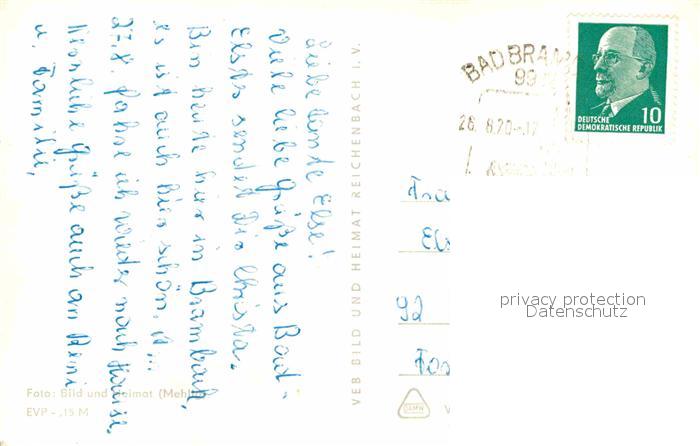 Liebe Tante Else!
Viele liebe Grüße aus Bad-
Elster sendet Dir Christa.
Bin heute hier in Brambach,
es ist auch hier schön. A...
27.8. fahre ich wieder nach Hause.
Herzliche Grüße auch an Reni
u. Familie,
Foto: Bild und Heimat
EVP -,15 M
VEB BILD UND HEIMAT REICHENBACH I.V.
BAD BRAM
99
28.8.70-17
10
DEUTSCHE
DEMOKRATISCHE REPUBLIK
Els
92
privacy protection
Datenschutz